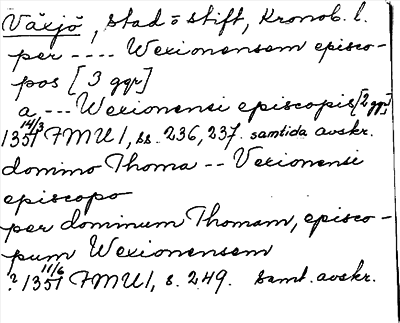 Växjö, stad o stift, Kronob. l.
per ---- Wexionensem episco-
pos [3 ggr]
a --- Wexionensi episcopis [2 ggr]
14/3 1351 FMU 1, ss. 236, 237. samtida avskr.
domino Thoma -- Vexionensi
episcopo
per dominum Thomam, episco-
pum Wexionensem
? 11/6 1351 FMU 1, s. 249. samt. avskr.